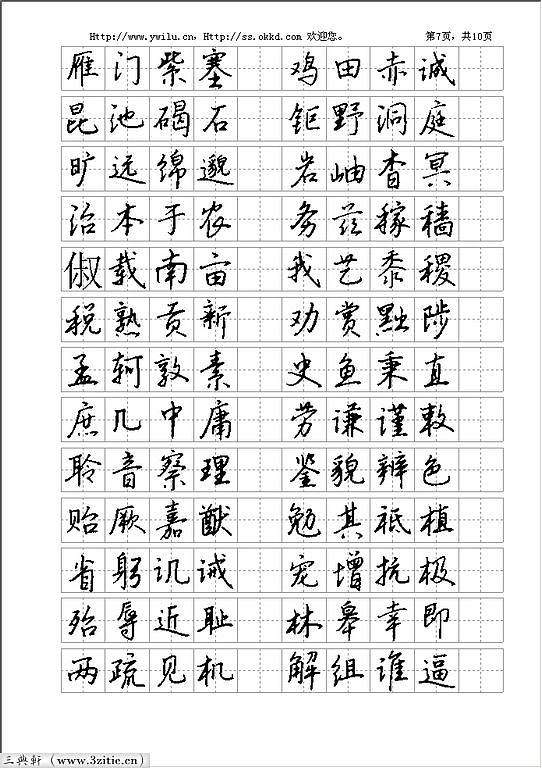 Http://www.ywilu.cn, Http://ss.okkd.com 欢迎您。 第7页, 共10页
雁门紫塞 鸡田赤诚
昆池碣石 钜野洞庭
旷远绵邈 岩岫杳冥
治本于农 务兹稼穑
俶载南亩 我艺黍稷
税熟贡新 劝赏黜陟
孟轲敦素 史鱼秉直
庶几中庸 劳谦谨敕
聆音察理 鉴貌辨色
贻厥嘉猷 勉其祗植
省躬讥诫 宠增抗极
殆辱近耻 林皋幸即
两疏见机 解组谁逼
三典轩 (www.3zitie.cn)